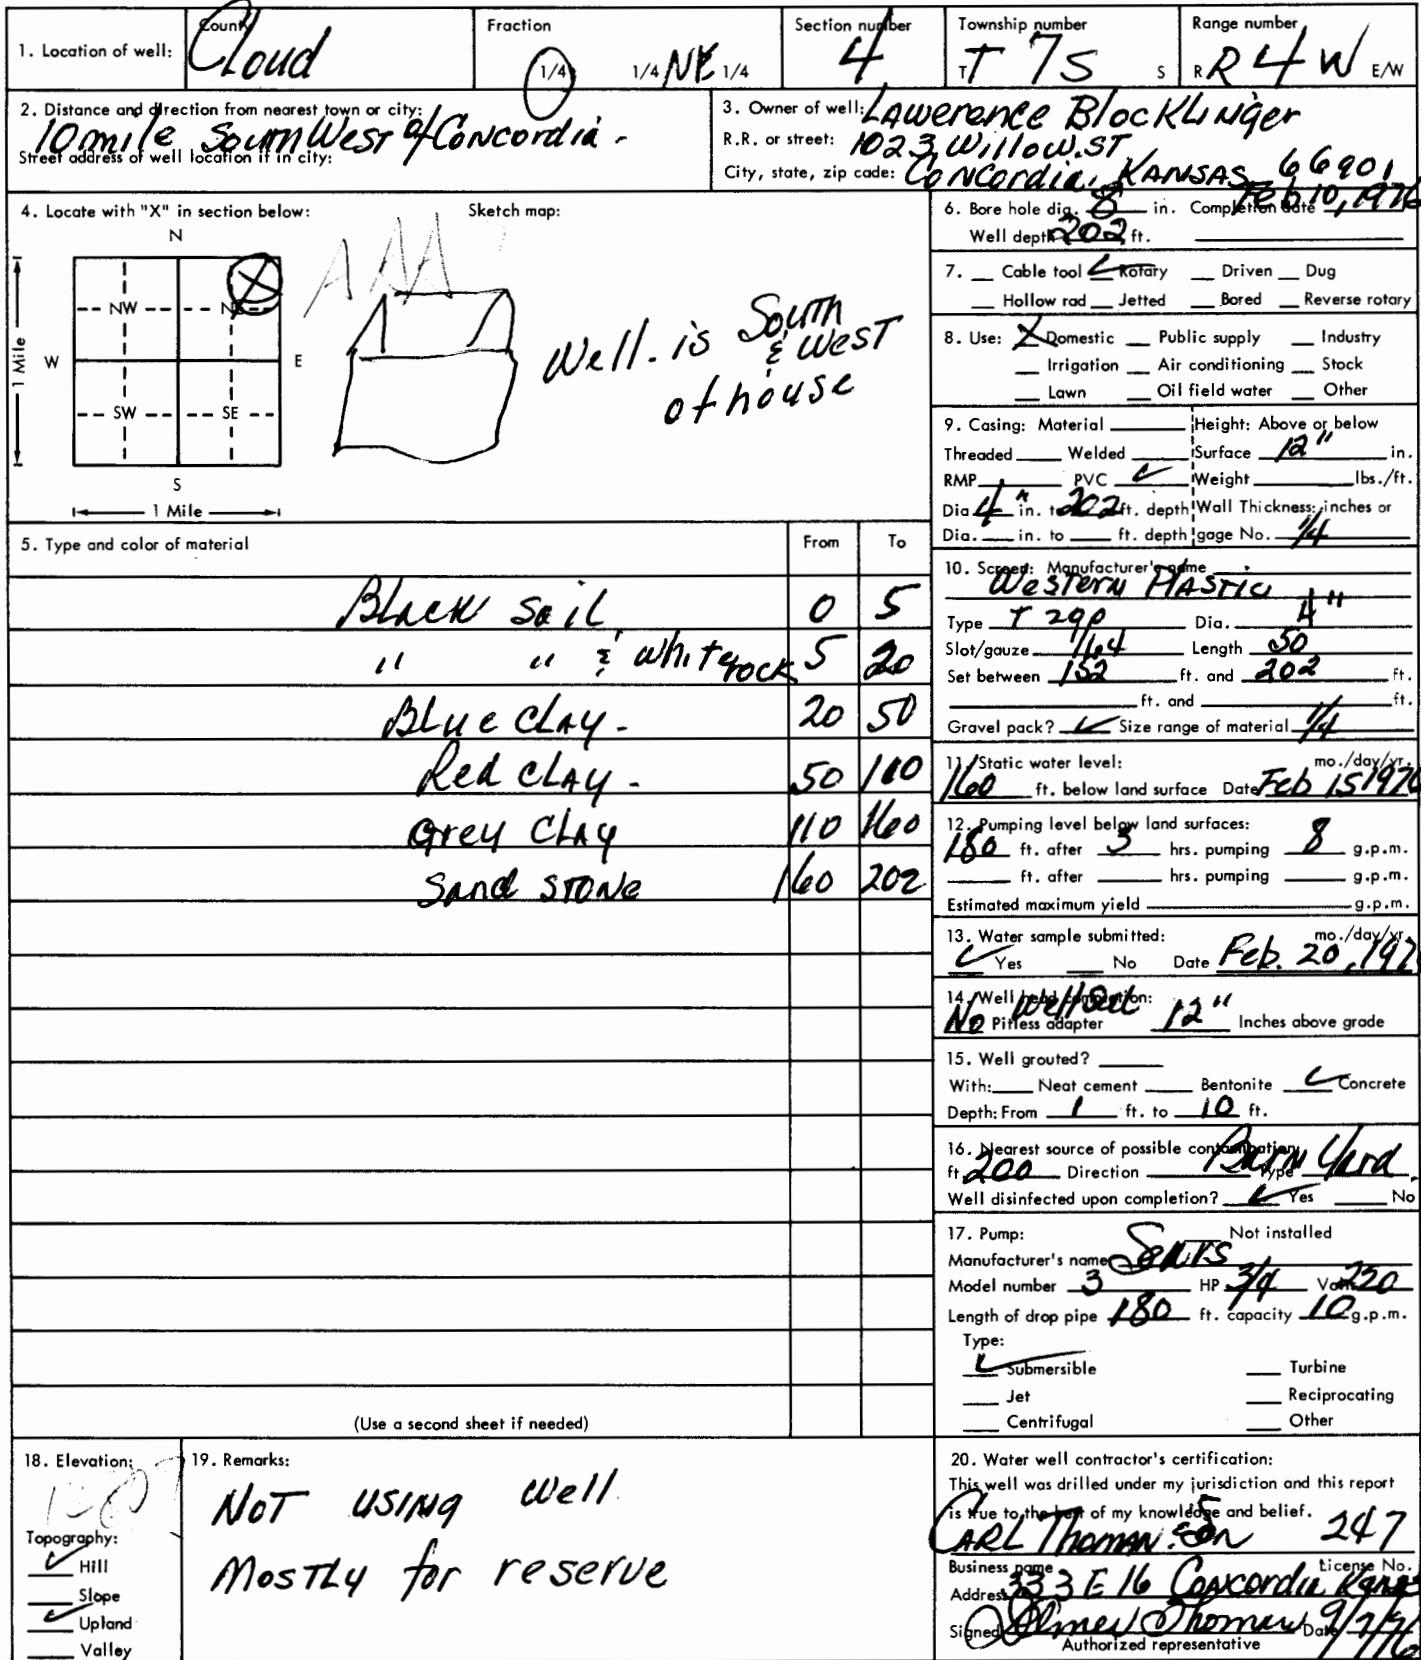 1. Location of well: County Cloud Fraction 1/4 1/4 NE 1/4 Section number 4 Township number T T 7S S Range number R R4W E/W
2. Distance and direction from nearest town or city:
10 mile SouthWest of Concordia -
Street address of well location if in city:
3. Owner of well: LAwerence BlocKlinger
R.R. or street: 1023 Willow.ST
City, state, zip code: CoNcordia, KANSAS 66901
4. Locate with "X" in section below: Sketch map:
N
AAA
NW NE
W E
SW SE
S
1 Mile
1 Mile
Well. is South
& west
of house
5. Type and color of material From To
BLACK Soil 0 5
" " & white rock 5 20
BLue CLAY - 20 50
Red CLAY - 50 110
Grey CLAY 110 160
Sand STONe 160 202
(Use a second sheet if needed)
6. Bore hole dia. 8" in. Completion date Feb 10, 1976
Well depth 202 ft.
7. Cable tool ✓ Rotary Driven Dug
Hollow rod Jetted Bored Reverse rotary
8. Use: X Domestic Public supply Industry
Irrigation Air conditioning Stock
Lawn Oil field water Other
9. Casing: Material Height: Above or below
Threaded Welded Surface 12" in.
RMP PVC ✓ Weight lbs./ft.
Dia. 4" in. to 202 ft. depth Wall Thickness: inches or
Dia. in. to ft. depth gage No. 1/4
10. Screen: Manufacturer's name
Western Plastic
Type T 290 Dia. 4"
Slot/gauze 1/64 Length 50
Set between 152 ft. and 202 ft.
ft. and ft.
Gravel pack? ✓ Size range of material 1/4
11. Static water level: mo./day/yr.
160 ft. below land surface Date Feb 15 1976
12. Pumping level below land surfaces:
180 ft. after 3 hrs. pumping 8 g.p.m.
ft. after hrs. pumping g.p.m.
Estimated maximum yield g.p.m.
13. Water sample submitted: mo./day/yr.
✓ Yes No Date Feb. 20, 197
14. Well head completion: Well Seal
No Pitless adapter 12" Inches above grade
15. Well grouted?
With: Neat cement Bentonite ✓ Concrete
Depth: From 1 ft. to 10 ft.
16. Nearest source of possible contamination:
ft. 200 Direction Type Barn Yard.
Well disinfected upon completion? ✓ Yes No
17. Pump: Not installed
Manufacturer's name Sears
Model number 3 HP 3/4 Volts 220
Length of drop pipe 180 ft. capacity 10 g.p.m.
Type:
✓ Submersible Turbine
Jet Reciprocating
Centrifugal Other
18. Elevation:
Topography:
✓ Hill
Slope
✓ Upland
Valley
19. Remarks:
NOT USING Well
MOSTLy for reserve
20. Water well contractor's certification:
This well was drilled under my jurisdiction and this report
is true to the best of my knowledge and belief.
CARL Thoman & Son 247
Business name License No.
Address 333 E 16 Concordia Kans
Signed Elmer Thoman Date 9/7/76
Authorized representative